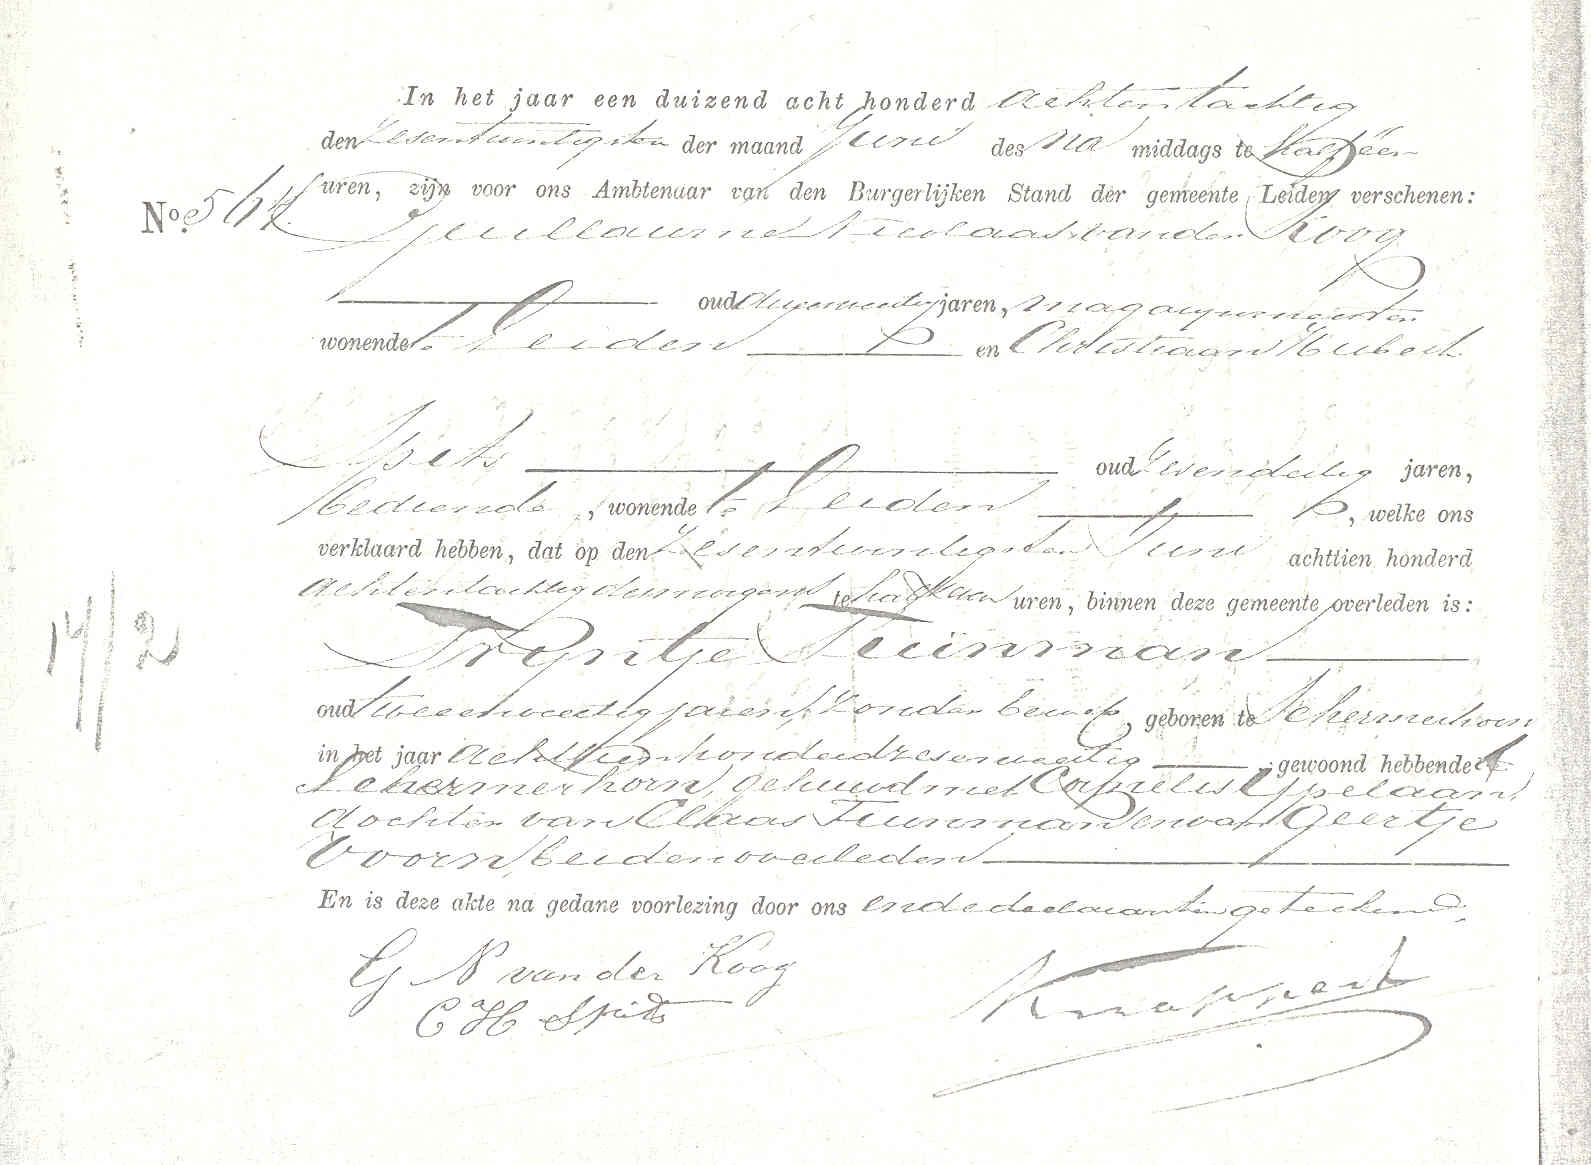 In het jaar een duizend acht honderd achtentachtig
den zesentwintigsten der maand Juni des na middags te half een
uren, zijn voor ons Ambtenaar van den Burgerlijken Stand der gemeente Leiden verschenen:
No. 564
Guillaume Nicolaas van der Koog
oud jaren, magazijnmeester
wonende te Leiden en Christiaan Hubert
Spits oud zesendertig jaren,
bediende, wonende te Leiden, welke ons
verklaard hebben, dat op den zesentwintigsten Juni achttien honderd
achtentachtig des morgens te half uren, binnen deze gemeente overleden is:
Tryntje Tuinman
oud tweeenveertig jaren, zonder beroep, geboren te Schermerhorn
in het jaar achttienhonderdzesenveertig gewoond hebbende te
Schermerhorn, gehuwd met Cornelis Ypelaan,
dochter van Claas Tuinman en van Geertje
Voorn, beiden overleden
En is deze akte na gedane voorlezing door ons en de declaranten geteekend.
G N van der Koog
C H Spits
Knappert
17/2